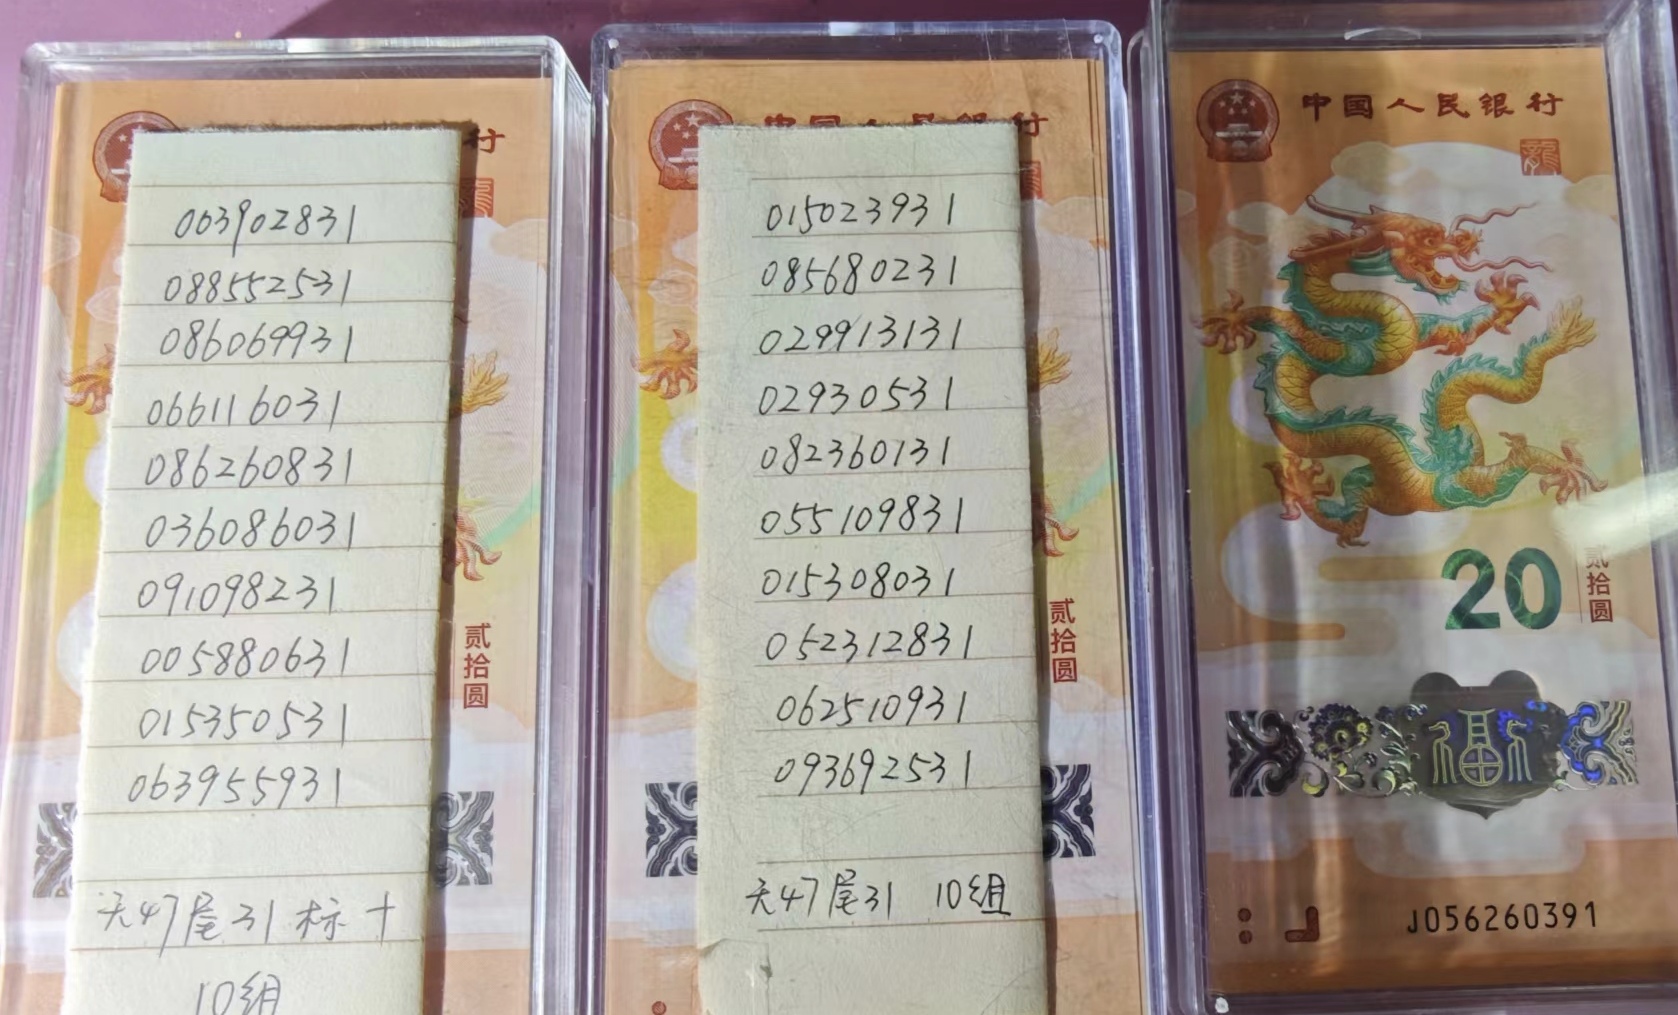 行
003902831
088552531
086069931
066116031
086260831
036086031
091098231
005880631
015350531
063955931
无47尾31 标十
10组
贰拾圆
中国人民银行
015023931
085680231
029913131
02930531
082360131
055109831
015308031
052312831
062510931
093692531
无47尾31 10组
贰拾圆
中国人民银行
龍
20
贰拾圆
福
J056260391